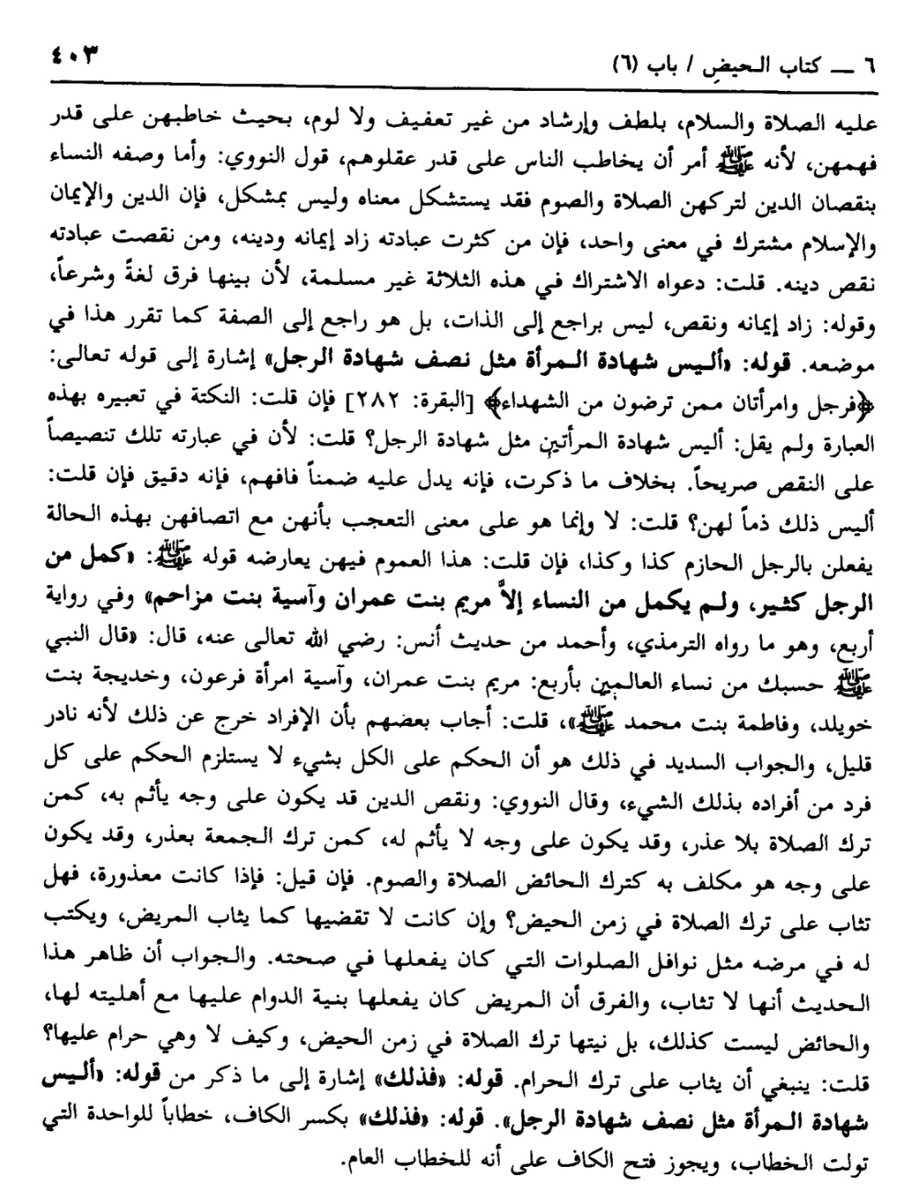 ٦ ــ كتاب الحيضِ / باب (٦)
٤٠٣
عليه الصلاة والسلام، بلطف وإرشاد من غير تعفيف ولا لوم، بحيث خاطبهن على قدر
فهمهن، لأنه ﷺ أمر أن يخاطب الناس على قدر عقلوهم، قول النووي: وأما وصفه النساء
بنقصان الدين لتركهن الصلاة والصوم فقد يستشكل معناه وليس بمشكل، فإن الدين والإيمان
والإسلام مشترك في معنى واحد، فإن من كثرت عبادته زاد إيمانه ودينه، ومن نقصت عبادته
نقص دينه. قلت: دعواه الاشتراك في هذه الثلاثة غير مسلمة، لأن بينها فرق لغةً وشرعاً،
وقوله: زاد إيمانه ونقص، ليس براجع إلى الذات، بل هو راجع إلى الصفة كما تقرر هذا في
موضعه. قوله: «أليس شهادة المرأة مثل نصف شهادة الرجل» إشارة إلى قوله تعالى:
﴿فرجل وامرأتان ممن ترضون من الشهداء﴾ [البقرة: ٢٨٢] فإن قلت: النكتة في تعبيره بهذه
العبارة ولم يقل: أليس شهادة المرأتين مثل شهادة الرجل؟ قلت: لأن في عبارته تلك تنصيصاً
على النقص صريحاً. بخلاف ما ذكرت، فإنه يدل عليه ضمناً فافهم، فإنه دقيق فإن قلت:
أليس ذلك ذماً لهن؟ قلت: لا وإنما هو على معنى التعجب بأنهن مع اتصافهن بهذه الحالة
يفعلن بالرجل الحازم كذا وكذا، فإن قلت: هذا العموم فيهن يعارضه قوله ﷺ: «كمل من
الرجل كثير، ولم يكمل من النساء إلاَّ مريم بنت عمران وآسية بنت مزاحم» وفي رواية
أربع، وهو ما رواه الترمذي، وأحمد من حديث أنس: رضي الله تعالى عنه، قال: «قال النبي
ﷺ حسبك من نساء العالمين بأربع: مريم بنت عمران، وآسية امرأة فرعون، وخديجة بنت
خويلد، وفاطمة بنت محمد ﷺ»، قلت: أجاب بعضهم بأن الإفراد خرج عن ذلك لأنه نادر
قليل، والجواب السديد في ذلك هو أن الحكم على الكل بشيء لا يستلزم الحكم على كل
فرد من أفراده بذلك الشيء، وقال النووي: ونقص الدين قد يكون على وجه يأثم به، كمن
ترك الصلاة بلا عذر، وقد يكون على وجه لا يأثم له، كمن ترك الجمعة بعذر، وقد يكون
على وجه هو مكلف به كترك الحائض الصلاة والصوم. فإن قيل: فإذا كانت معذورة، فهل
تثاب على ترك الصلاة في زمن الحيض؟ وإن كانت لا تقضيها كما يثاب المريض، ويكتب
له في مرضه مثل نوافل الصلوات التي كان يفعلها في صحته. والجواب أن ظاهر هذا
الحديث أنها لا تثاب، والفرق أن المريض كان يفعلها بنية الدوام عليها مع أهليته لها،
والحائض ليست كذلك، بل نيتها ترك الصلاة في زمن الحيض، وكيف لا وهي حرام عليها؟
قلت: ينبغي أن يثاب على ترك الحرام. قوله: «فذلك» إشارة إلى ما ذكر من قوله: «أليس
شهادة المرأة مثل نصف شهادة الرجل». قوله: «فذلك» بكسر الكاف، خطاباً للواحدة التي
تولت الخطاب، ويجوز فتح الكاف على أنه للخطاب العام.